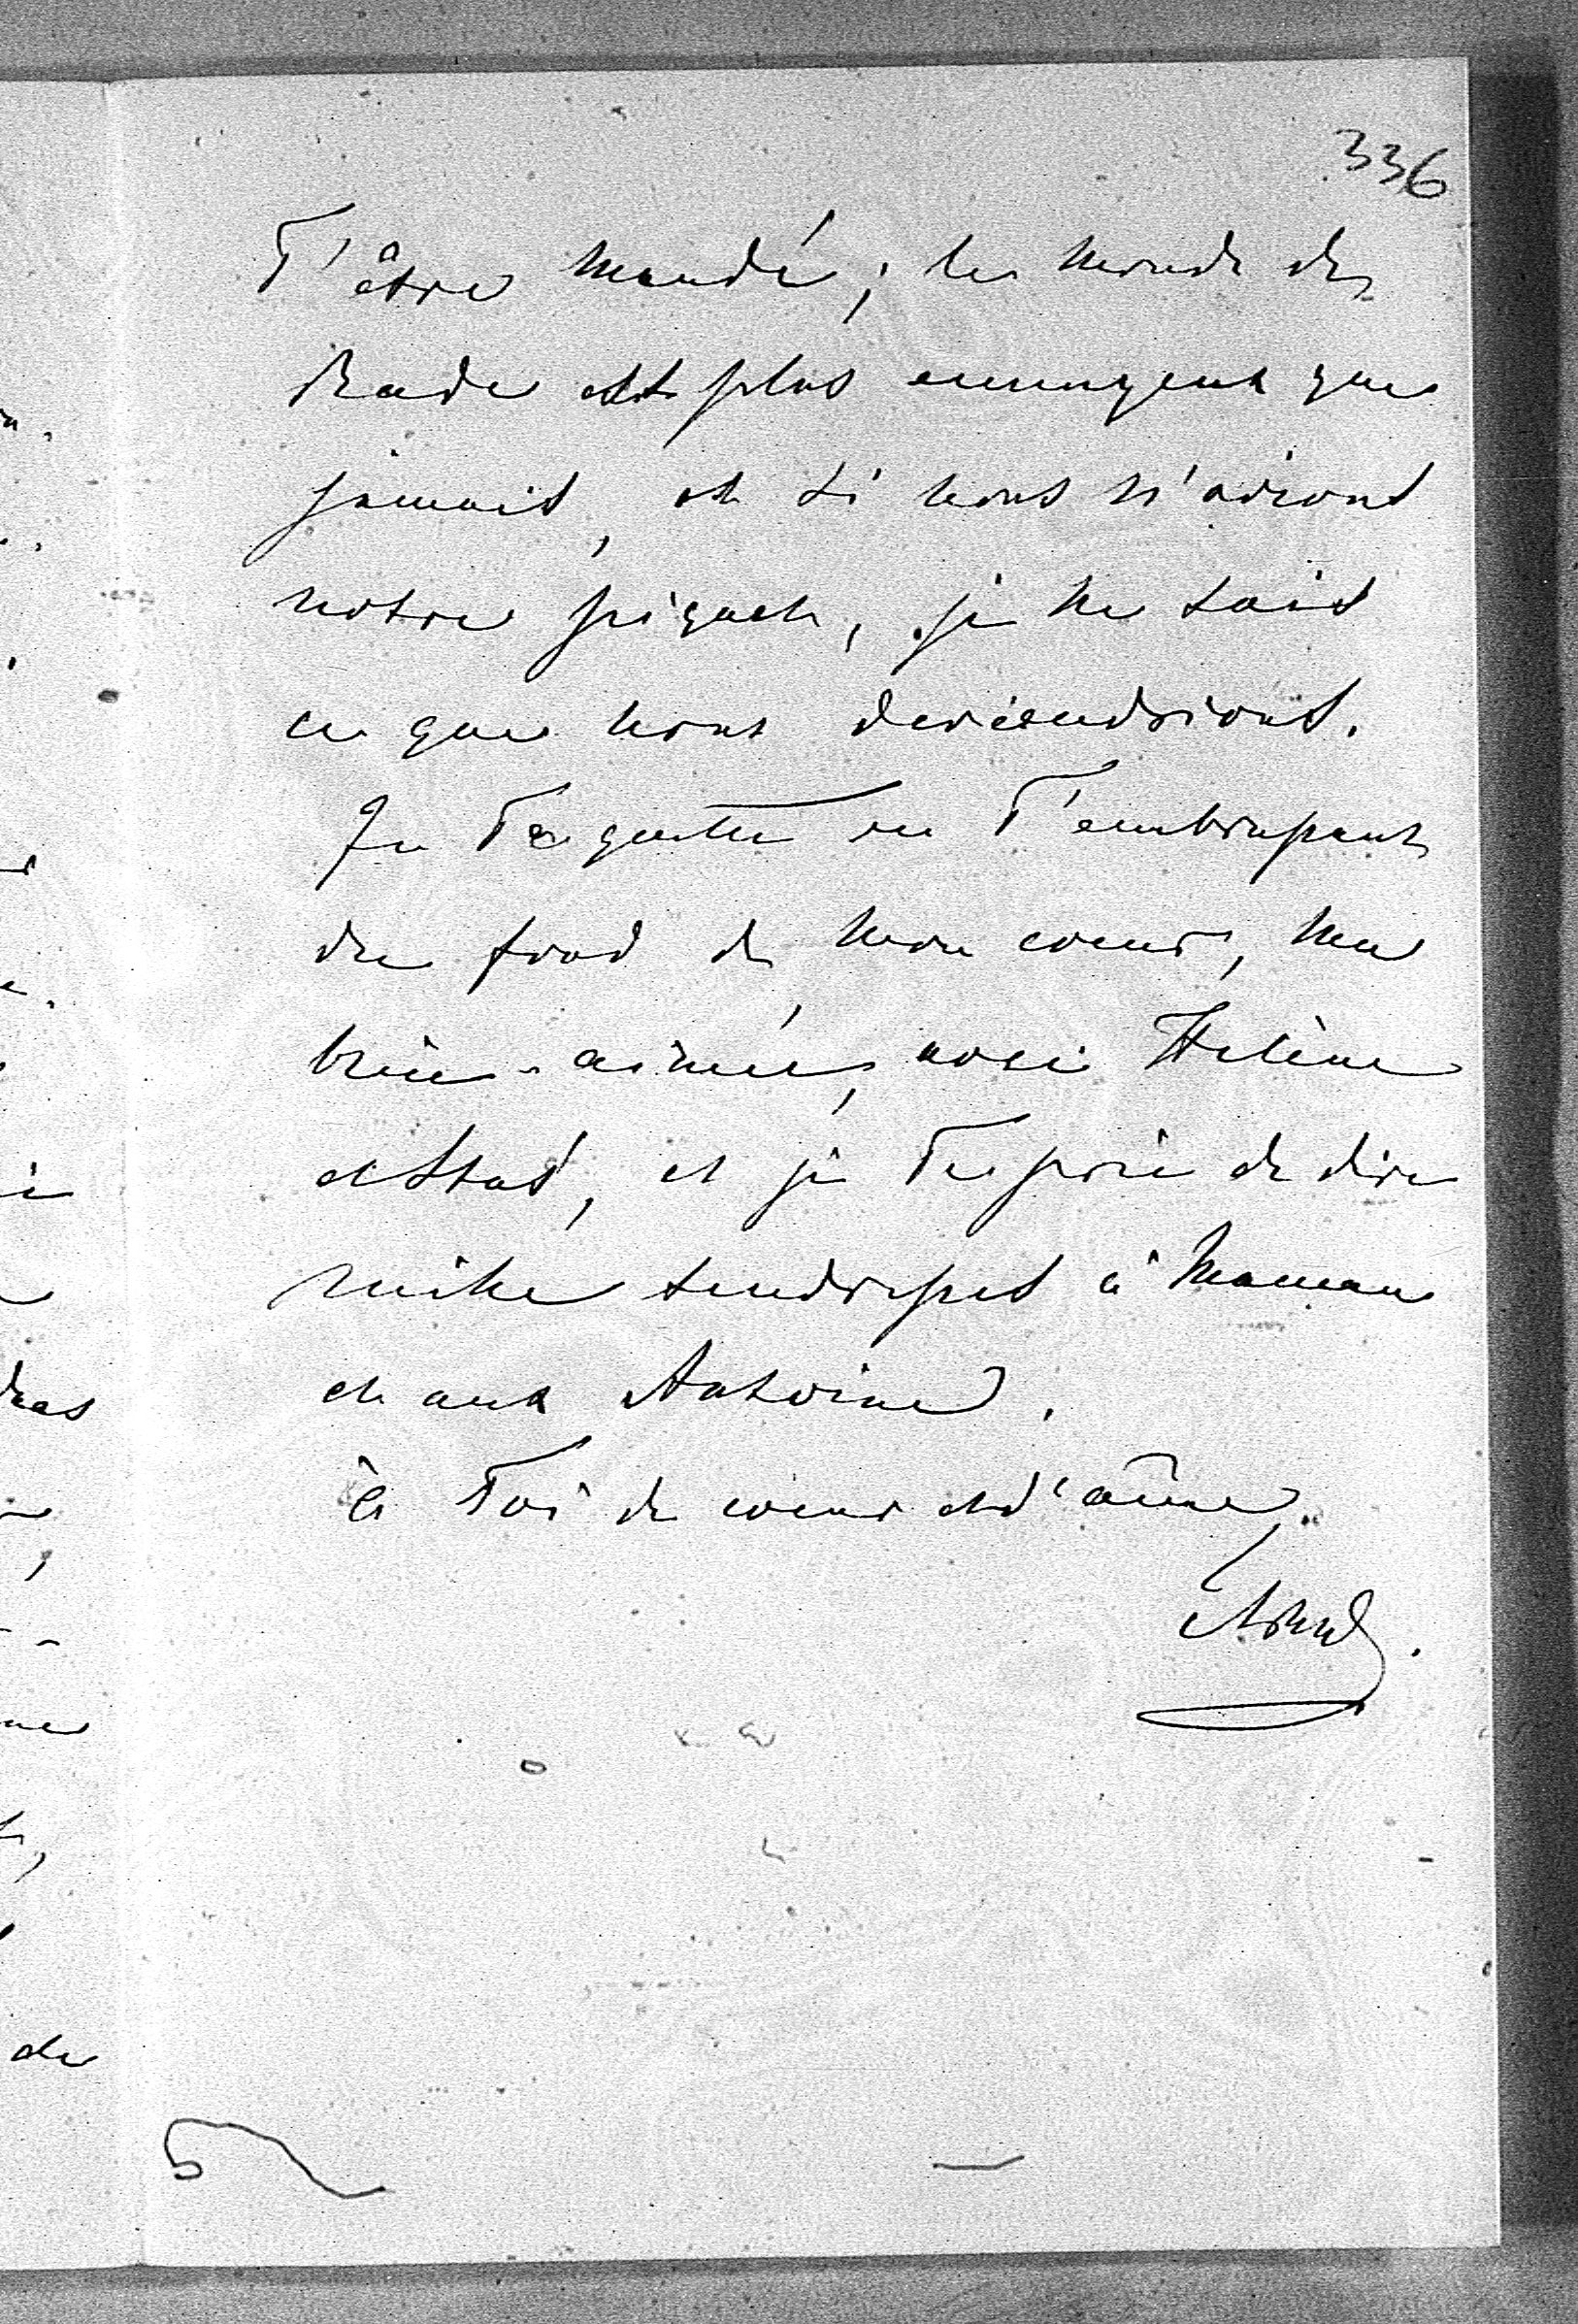 336
T'être mandé; le monde de
Bade est plus ennuyeux que
jamais, et si nous n'avions
notre piquet, je ne sais
ce que nous deviendrions.
Je Te quitte en T'embrassant
du fond de mon coeur, ma
bien-aimée, avec Hélène
et Stas, et je Te prie de dire
mille tendresses à Maman
et aux Antoine.
à Toi de coeur et d'âme,